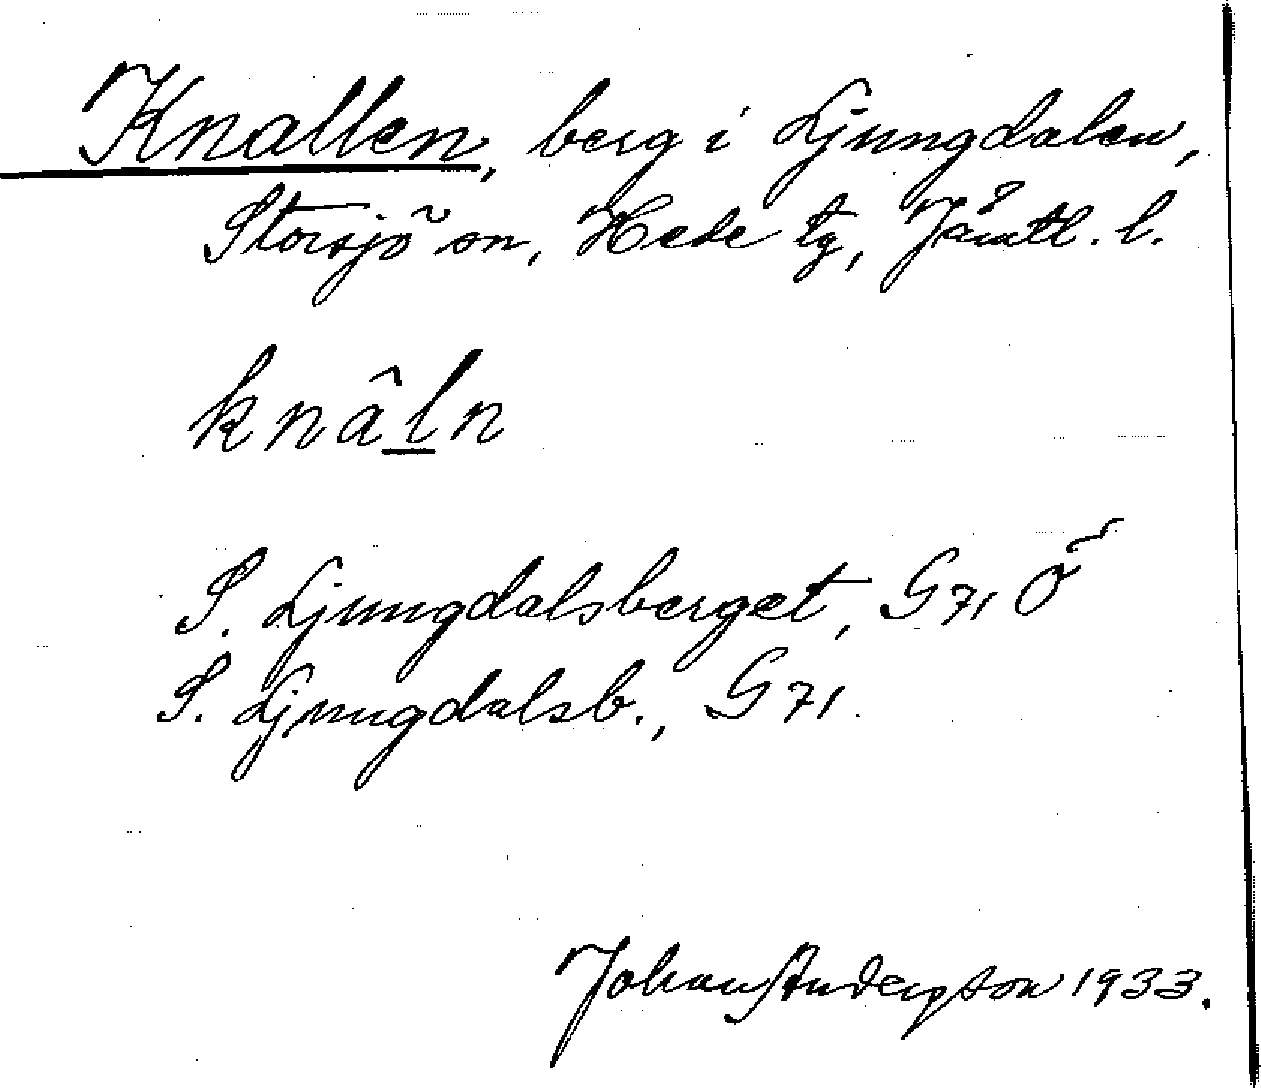 Knallen, berg i Ljungdalen,
Storsjö sn, Hede tg, Jämtl. l.
knâln
S. Ljungdalsberget, G 71 Ö
S. Ljungdalsb., G 71.
Johan Anderson 1933.